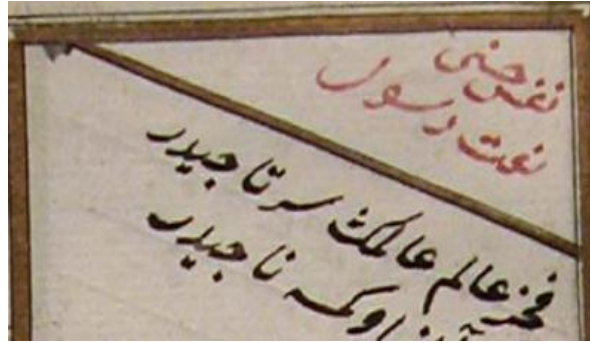 نفس حسنی
نعت رسول
فخر عالم عالمك سر تاجیدر
اوكه ناجیدر